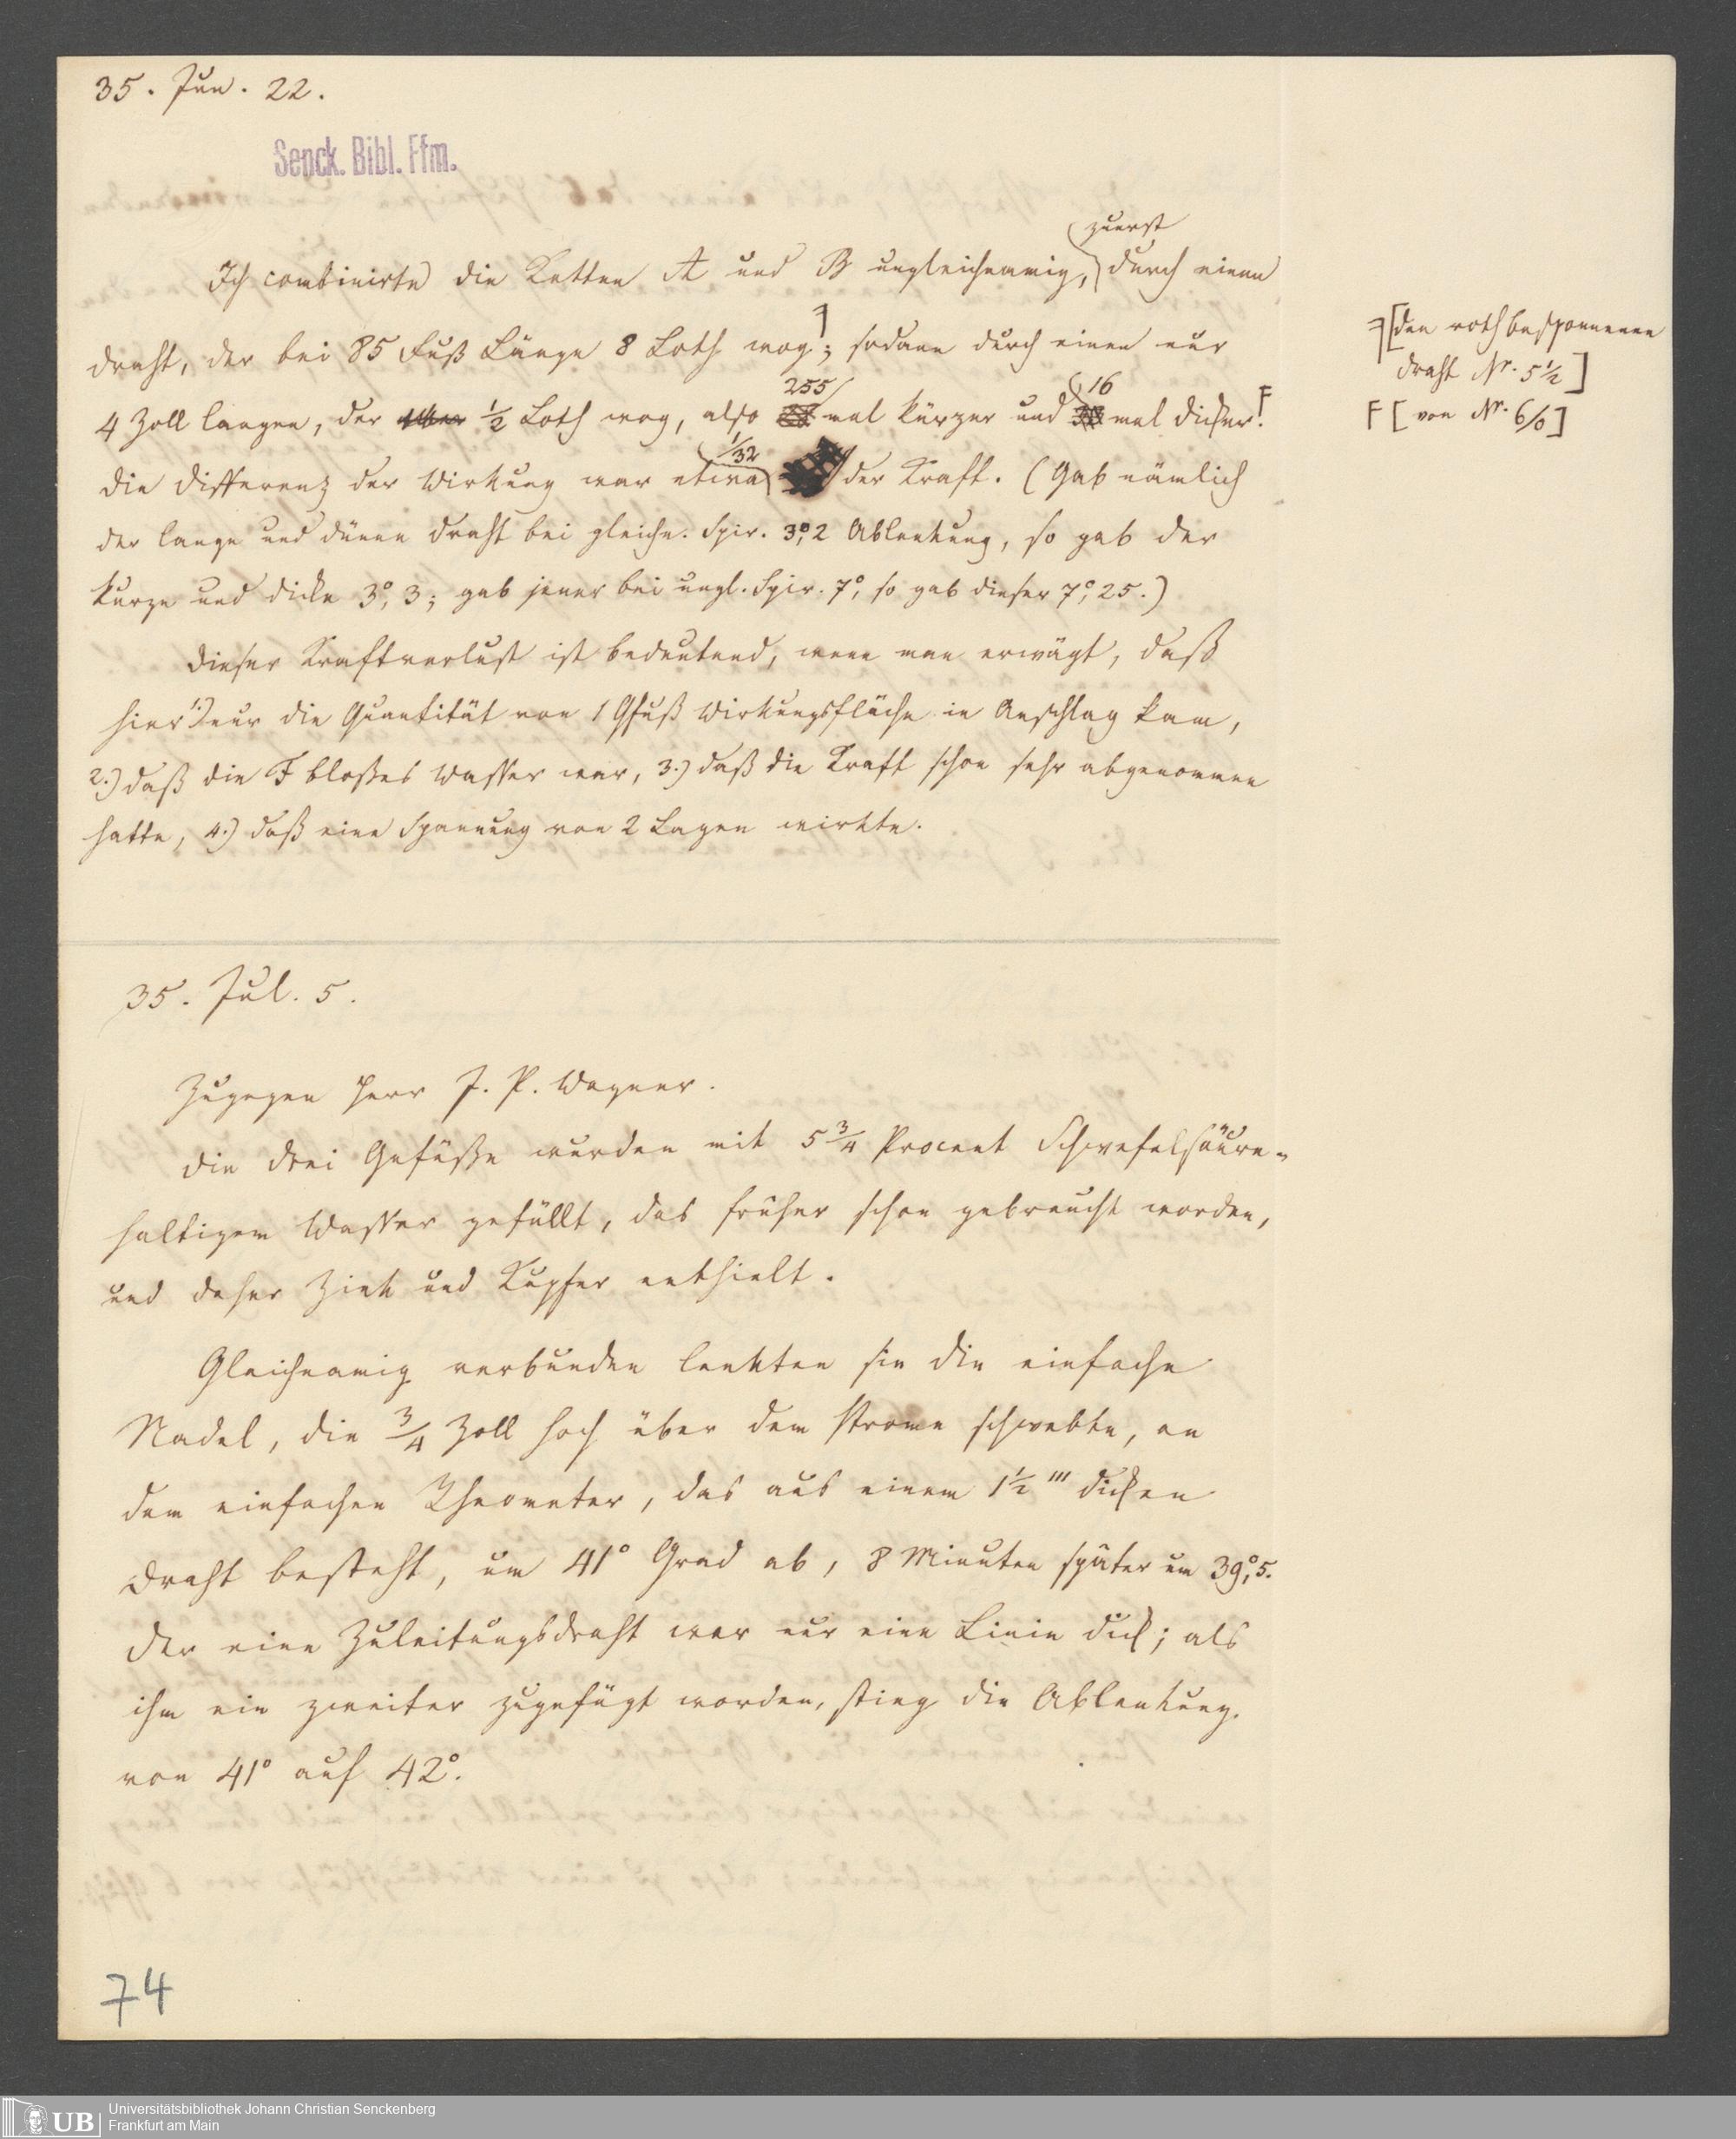 35. Jun. 22.
Senck. Bibl. Ffm.
zuerst
Ich combinirte die Ketten A und B ungleichnamig, durch einen
Draht, der bei 85 Fuß Länge 8 Loth wog; sodann durch einen nur
255 16
4 Zoll langen, der ½ Loth wog, also mal kürzer und mal dicker.
1/32
Die Differenz der Wirkung war etwa der Kraft. (Gab nämlich
der lange und dünne Draht bei gleichn. Spir. 3°,2 Ablenkung, so gab der
kurze und dicke 3°,3; gab jener bei ungl. Spir. 7°, so gab dieser 7°,25.)
Dieser Kraftverlust ist bedeutend, wenn man erwägt, daß
hier 1.) nur die Quantität von 1 Qfuß Wirkungsfläche in Anschlag kam,
2.) daß die F bloßes Wasser war, 3.) daß die Kraft schon sehr abgenommen
hatte, 4.) daß eine Spannung von 2 Lagen wirkte.
[den roth besponnenen
Draht Nr. 5½]
F [von Nr. 6/0]
35. Jul. 5.
Zugegen Herr J. P. Wagner.
Die drei Gefäße wurden mit 5¾ Procent Schwefelsäure-
haltigem Wasser gefüllt, das früher schon gebraucht worden,
und daher Zink und Kupfer enthielt.
Gleichnamig verbunden lenkten sie die einfache
Nadel, die ¾ Zoll hoch über dem Strome schwebte, an
dem einfachen Rheometer, das aus einem 1½''' dicken
Draht besteht, um 41° Grad ab, 8 Minuten später um 39°,5.
Der eine Zuleitungsdraht war nur eine Linie dick; als
ihm ein zweiter zugefügt worden, stieg die Ablenkung
von 41° auf 42°.
74
UB
Universitätsbibliothek Johann Christian Senckenberg
Frankfurt am Main